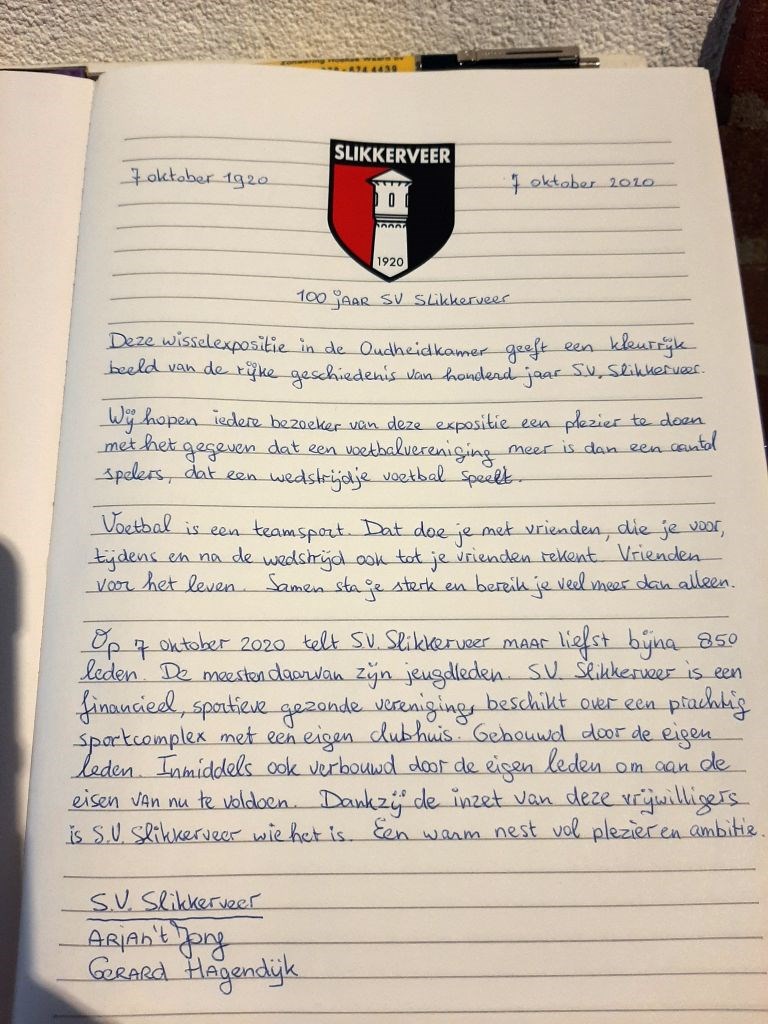 Zonwering Hoekse Waard bv
078 - 674 4439
SLIKKERVEER
7 oktober 1920
7 oktober 2020
1920
100 jaar SV Slikkerveer
Deze wisselexpositie in de Oudheidkamer geeft een kleurrijk
beeld van de rijke geschiedenis van honderd jaar S.V. Slikkerveer.
Wij hopen iedere bezoeker van deze expositie een plezier te doen
met het gegeven dat een voetbalvereniging meer is dan een aantal
spelers, dat een wedstrijdje voetbal speelt.
Voetbal is een teamsport. Dat doe je met vrienden, die je voor,
tijdens en na de wedstrijd ook tot je vrienden rekent. Vrienden
voor het leven. Samen sta je sterk en bereik je veel meer dan alleen.
Op 7 oktober 2020 telt S.V. Slikkerveer maar liefst bijna 850
leden. De meesten daarvan zijn jeugdleden. S.V. Slikkerveer is een
financieel, sportieve gezonde vereniging, beschikt over een prachtig
sportcomplex met een eigen clubhuis. Gebouwd door de eigen
leden. Inmiddels ook verbouwd door de eigen leden om aan de
eisen van nu te voldoen. Dankzij de inzet van deze vrijwilligers
is S.V. Slikkerveer wie het is. Een warm nest vol plezier en ambitie.
S.V. Slikkerveer
Arjan 't Jong
Gerard Hagendijk